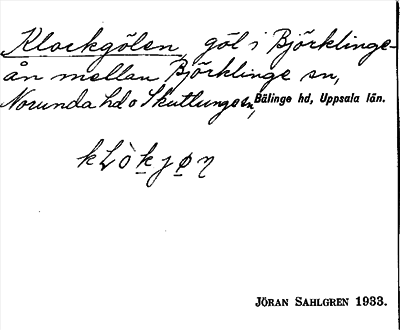 Klockgölen, göl i Björklinge-
ån mellan Björklinge sn,
Norunda hd o Skuttunge sn, Bälinge hd, Uppsala län.
kLò̀kjøn
JÖRAN SAHLGREN 1933.